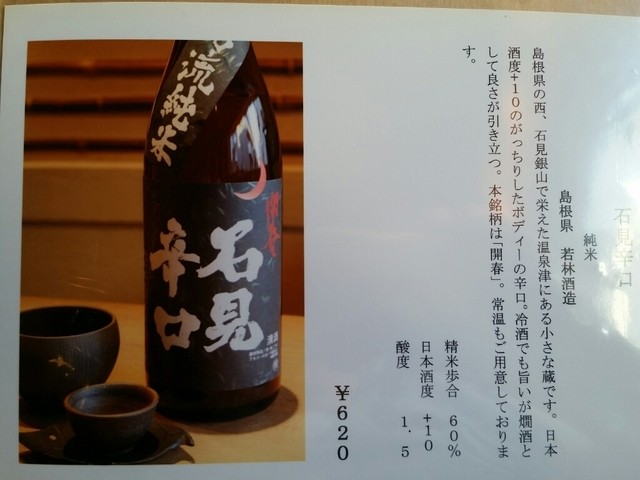 石見辛口
純米
島根県　若林酒造
島根県の西、石見銀山で栄えた温泉津にある小さな蔵です。日本
酒度+10のがっちりしたボディーの辛口。冷酒でも旨いが燗酒と
して良さが引き立つ。本銘柄は「開春」。常温もご用意しておりま
す。
精米歩合　60%
日本酒度　+10
酸度　1.5
¥620
流純米
石見
辛口
清酒